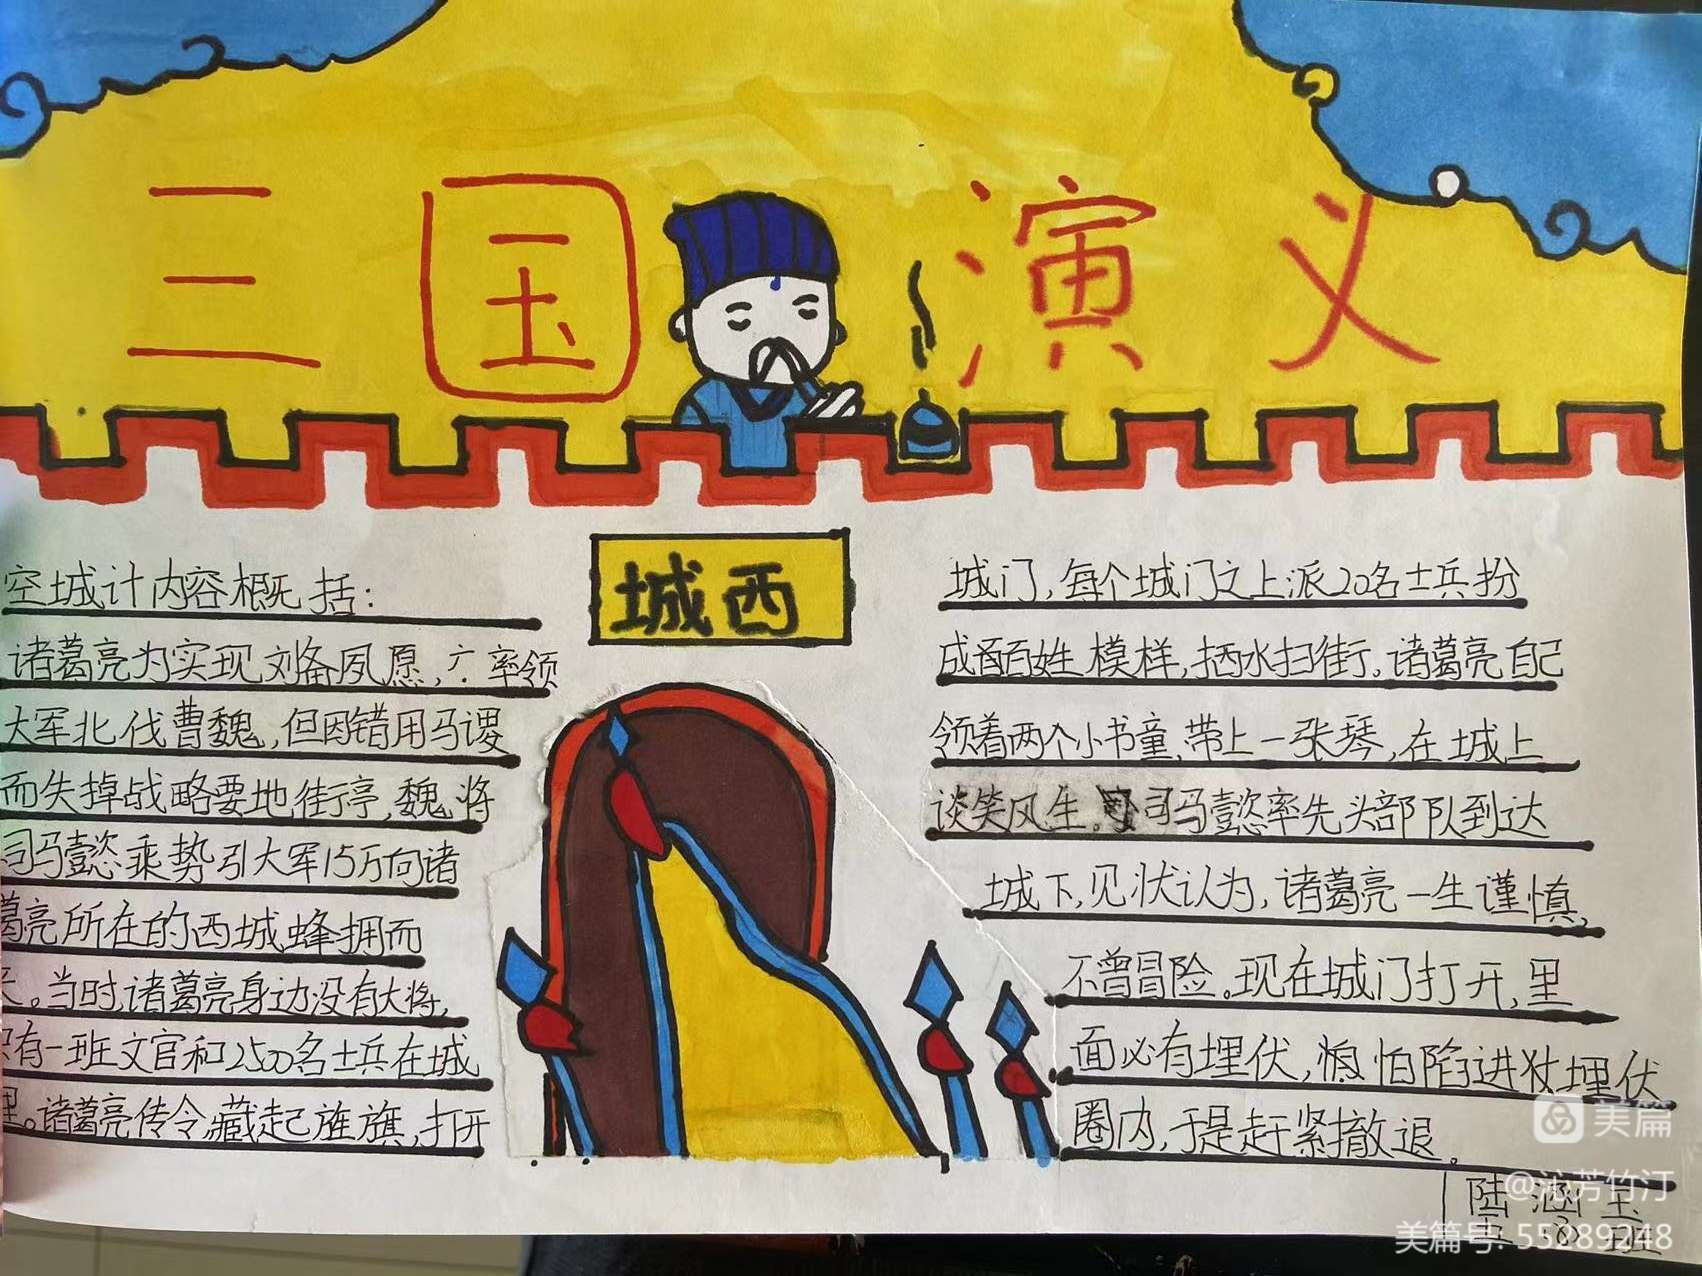 三国演义
城西
空城计内容概括:
诸葛亮为实现刘备夙愿,六率领
大军北伐曹魏,但因错用马谡
而失掉战略要地街亭,魏将
司马懿乘势引大军15万向诸
葛亮所在的西城蜂拥而
来。当时,诸葛亮身边没有大将,
只有一班文官和2500名士兵在城
里。诸葛亮传令,藏起旌旗,打开
城门,每个城门之上派20名士兵扮
成百姓模样,洒水扫街。诸葛亮自己
领着两个小书童,带上一张琴,在城上
谈笑风生。司马懿率先头部队到达
城下,见状认为,诸葛亮一生谨慎,
不曾冒险。现在城门打开,里
面必有埋伏,惧怕陷进埋伏
圈内,于是赶紧撤退。
陆涵
班
美篇
@沁芳竹汀
美篇号: 55289248